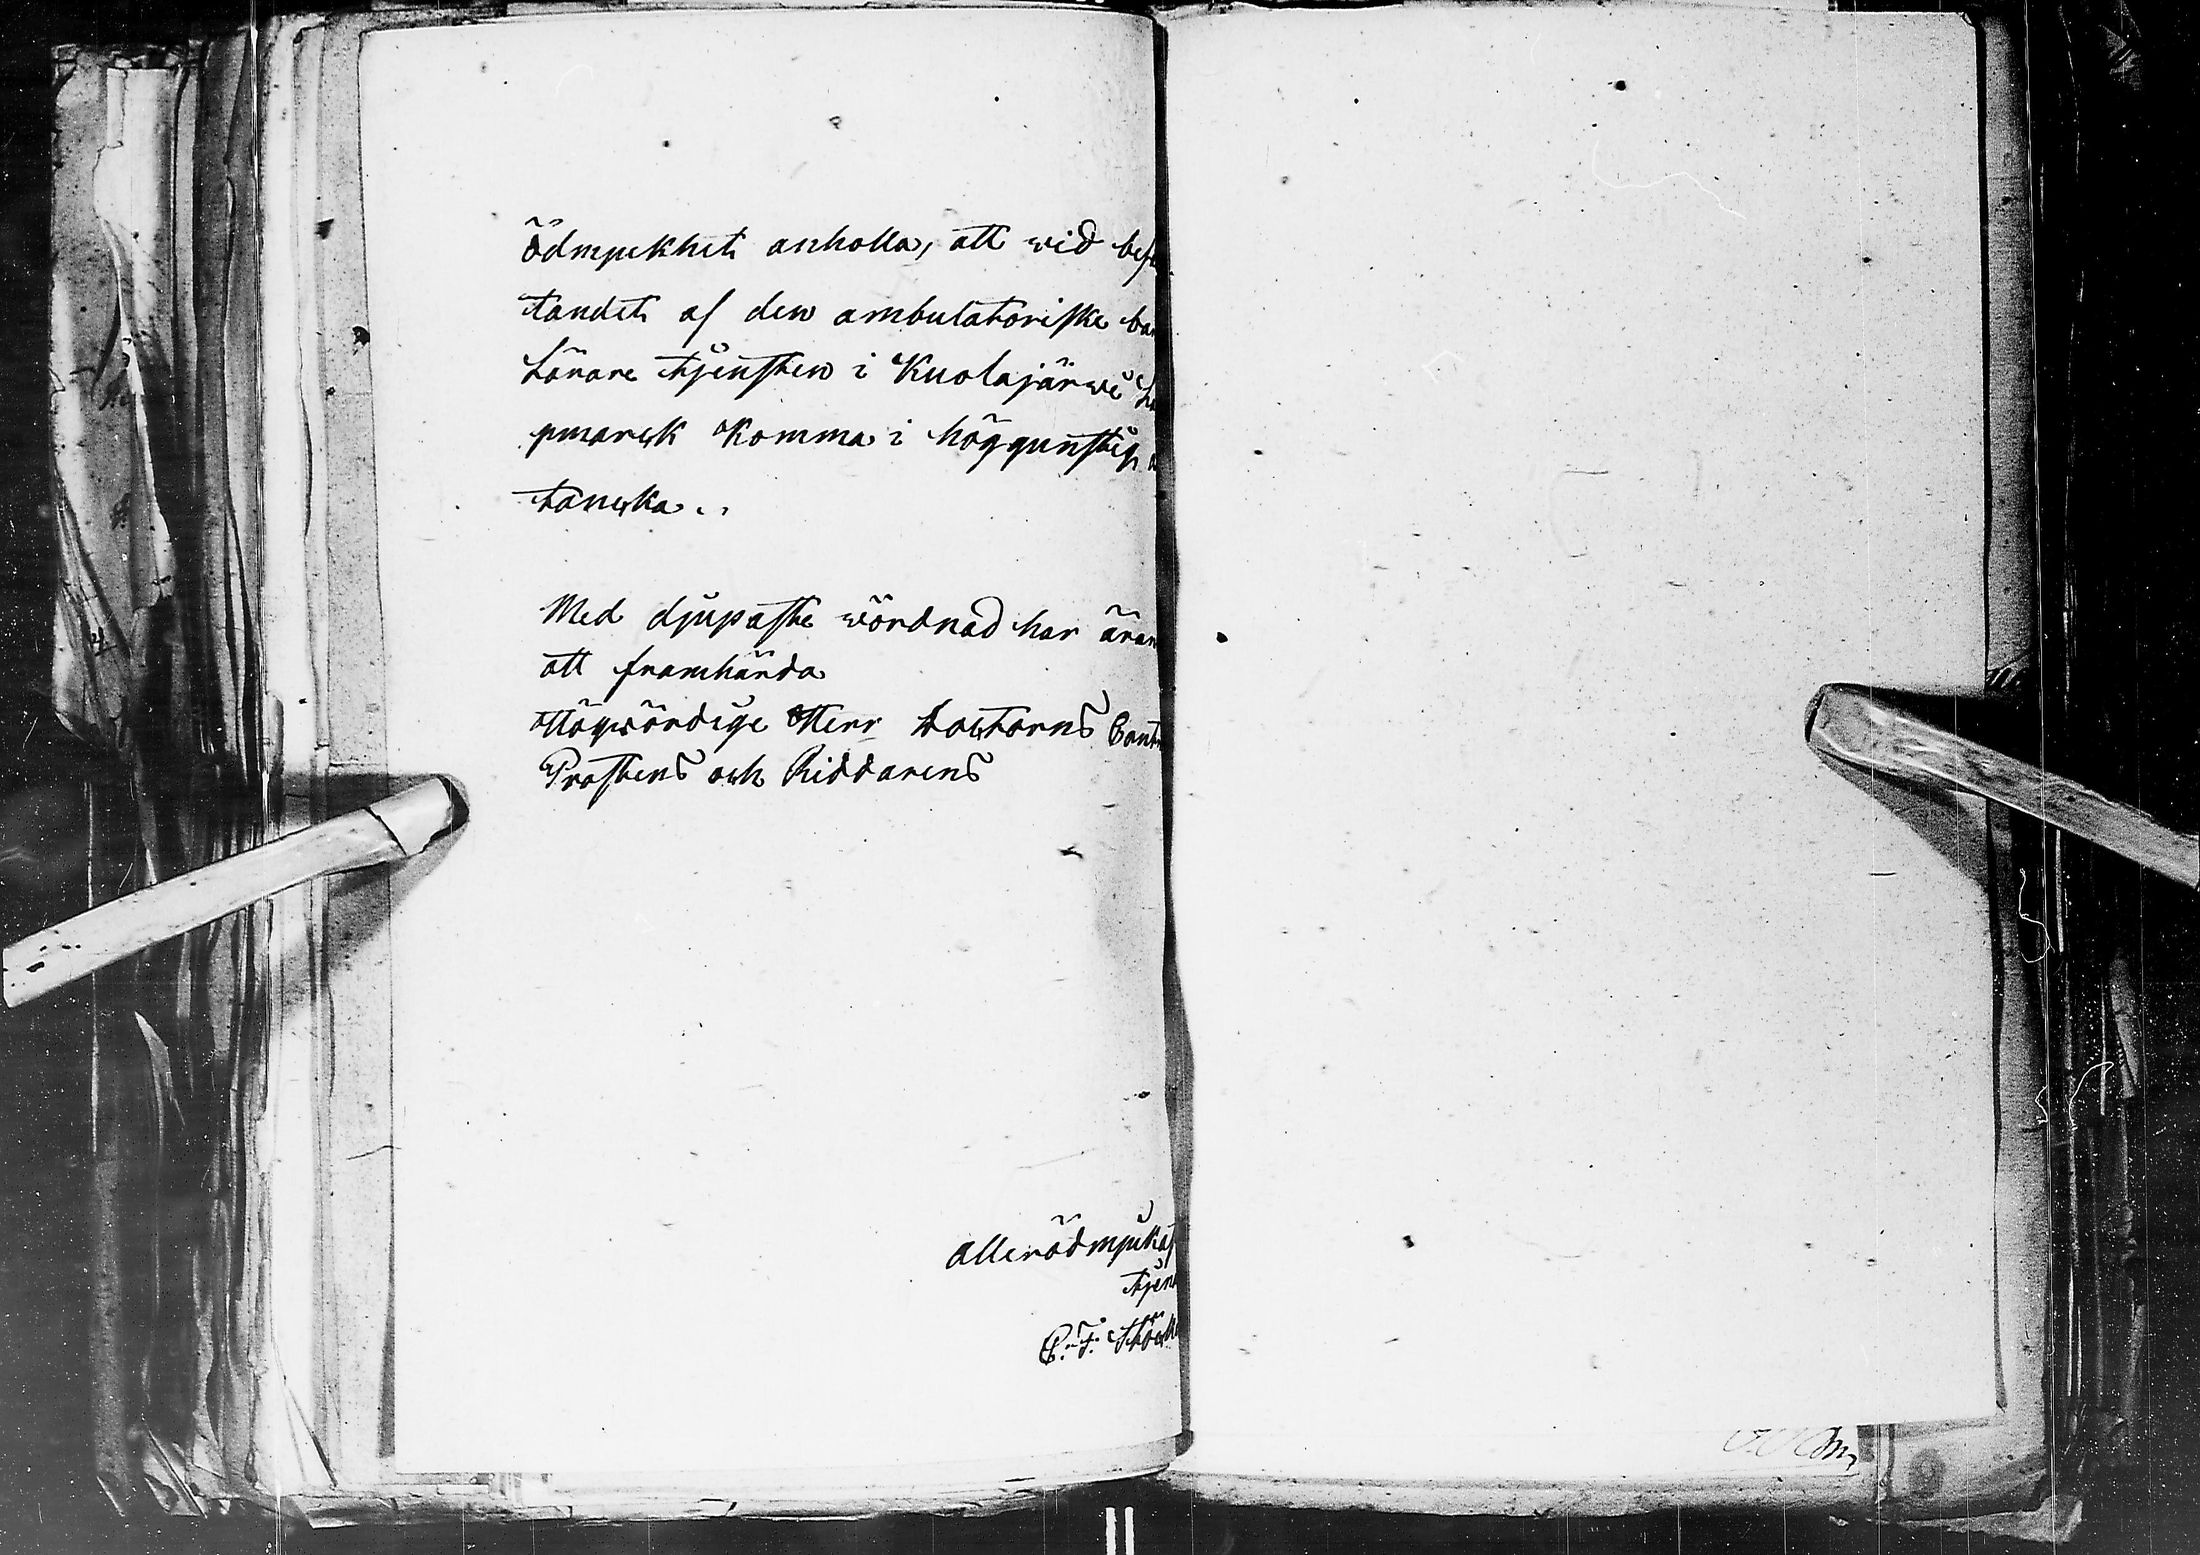 ödmjukhet anholla, att wid besä
tandet af den ambulatoriske bar
Lärare tjensten i Kuolajärwi La
pmarck komma i höggunstig
tancka..
Med djupaste wördnad har äran
att framhärda
Högwördige Herr Doctorns Cont
Prostens och Riddarens
allerödmjukas
tjen